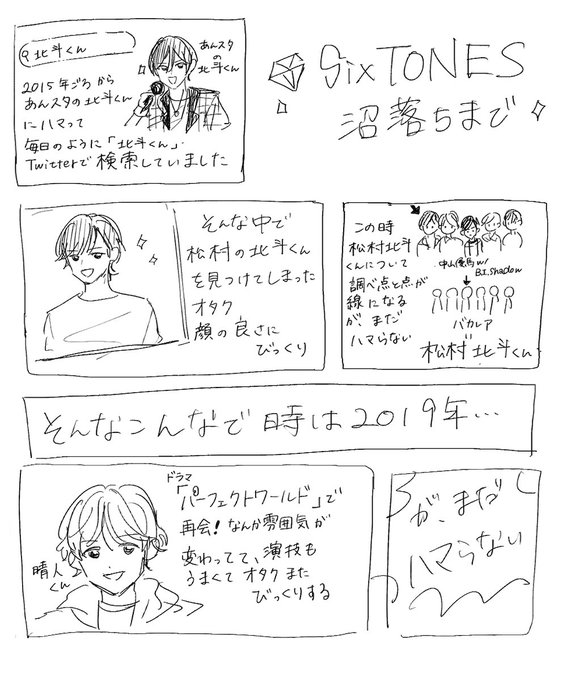 SixTONES
沼落ちまで
北斗くん
あんスタ
の
北斗くん
2015年ごろから
あんスタの北斗くん
にハマって
毎日のように「北斗くん」
Twitterで検索していました
そんな中で
松村の北斗くん
を見つけてしまった
オタク
顔の良さに
びっくり
この時
松村北斗
くんについて
調べ点と点が
線になる
が、まだ
ハマらない
中山優馬w/
B.I.Shadow
バカレア
松村北斗くん
そんなこんなで時は2019年...
ドラマ
「パーフェクトワールド」で
再会!なんか雰囲気が
変わってて、演技も
うまくてオタクまた
びっくりする
晴人
くん
が、まだ
ハマらない